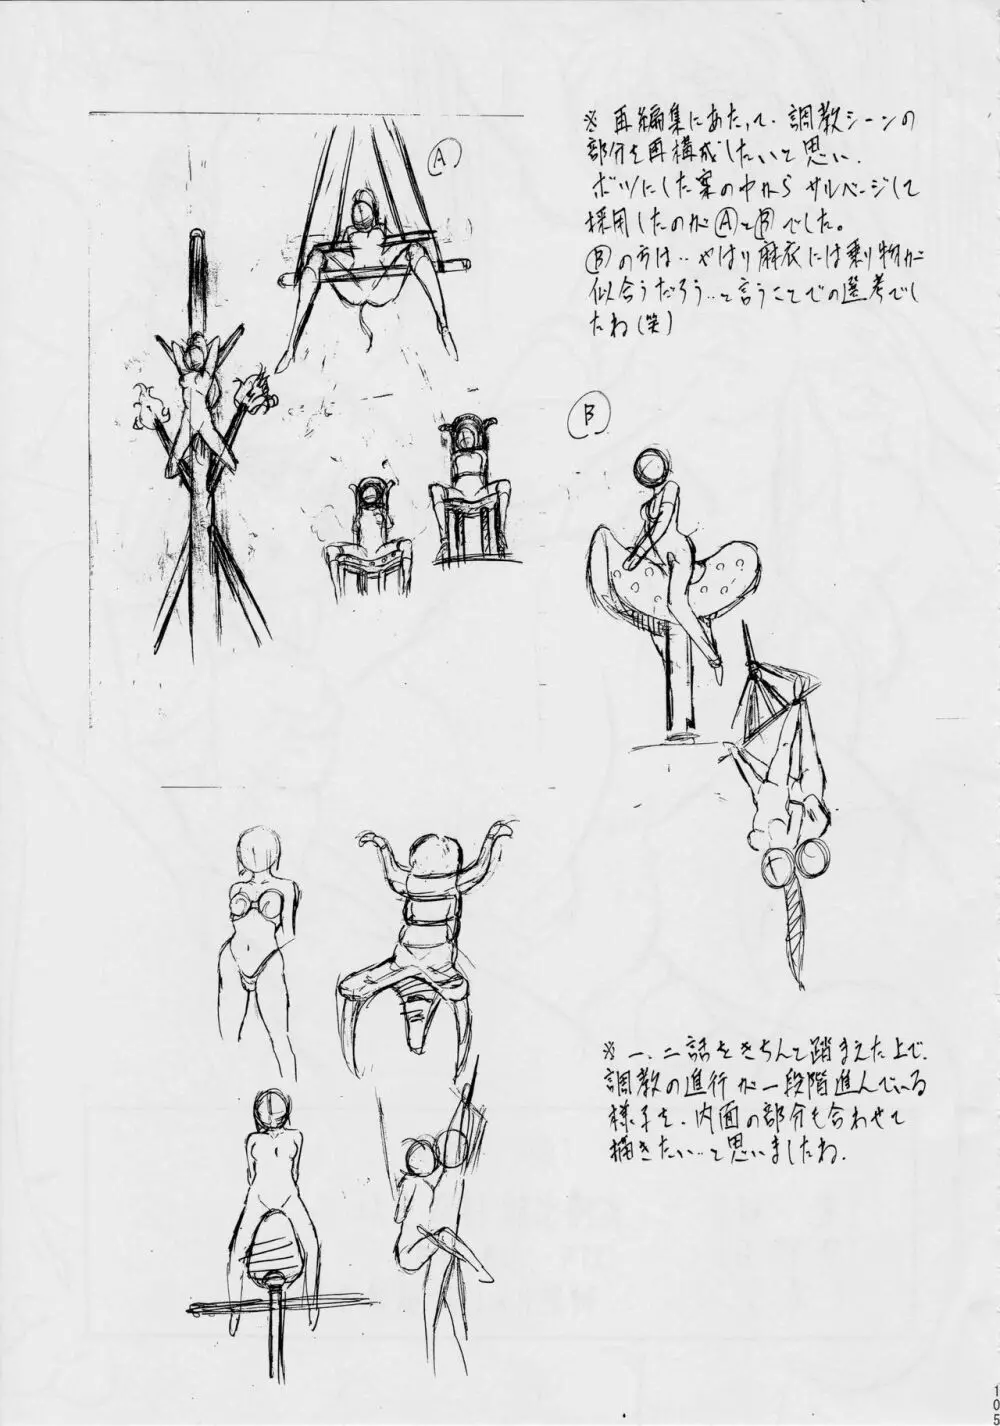 Ⓐ
※再編集にあたって、調教シーンの
部分を再構成したいと思い、
ボツにした案の中からサルベージして
採用したのがⒶとⒷでした。
Ⓑの方は‥やはり麻衣には乗り物が
似合うだろう‥と言うことでの選考でし
たね(笑)
Ⓑ
※一、二話をきちんと踏まえた上で、
調教の進行が一段階進んでいる
様子を、内面の部分も合わせて
描きたい‥と思いましたね。
105